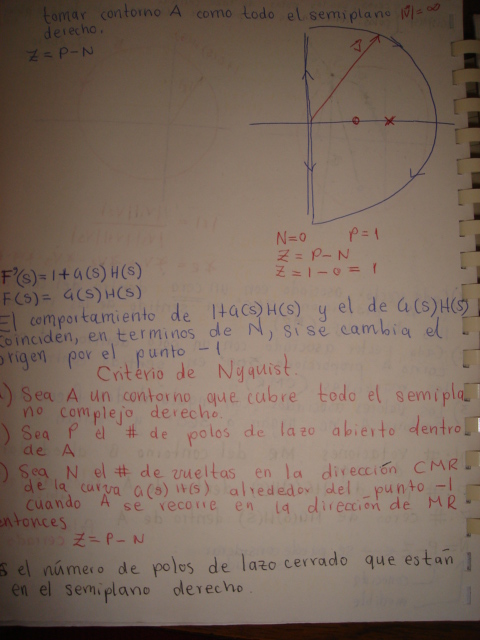 tomar contorno A como todo el semiplano |V|=∞
derecho.
Z = P-N
N=0 P=1
Z = P-N
Z = 1-0 = 1
F'(s) = 1+G(s)H(s)
F(s) = G(s)H(s)
El comportamiento de 1+G(s)H(s) y el de G(s)H(s)
coinciden, en terminos de N, si se cambia el
origen por el punto -1
Criterio de Nyquist.
) Sea A un contorno que cubre todo el semipla
no complejo derecho.
) Sea P el # de polos de lazo abierto dentro
de A
) Sea N el # de vueltas en la dirección CMR
de la curva G(s)H(s) alrededor del punto -1
cuando A se recorre en la dirección de MR
entonces
Z = P-N
s el número de polos de lazo cerrado que están
en el semiplano derecho.